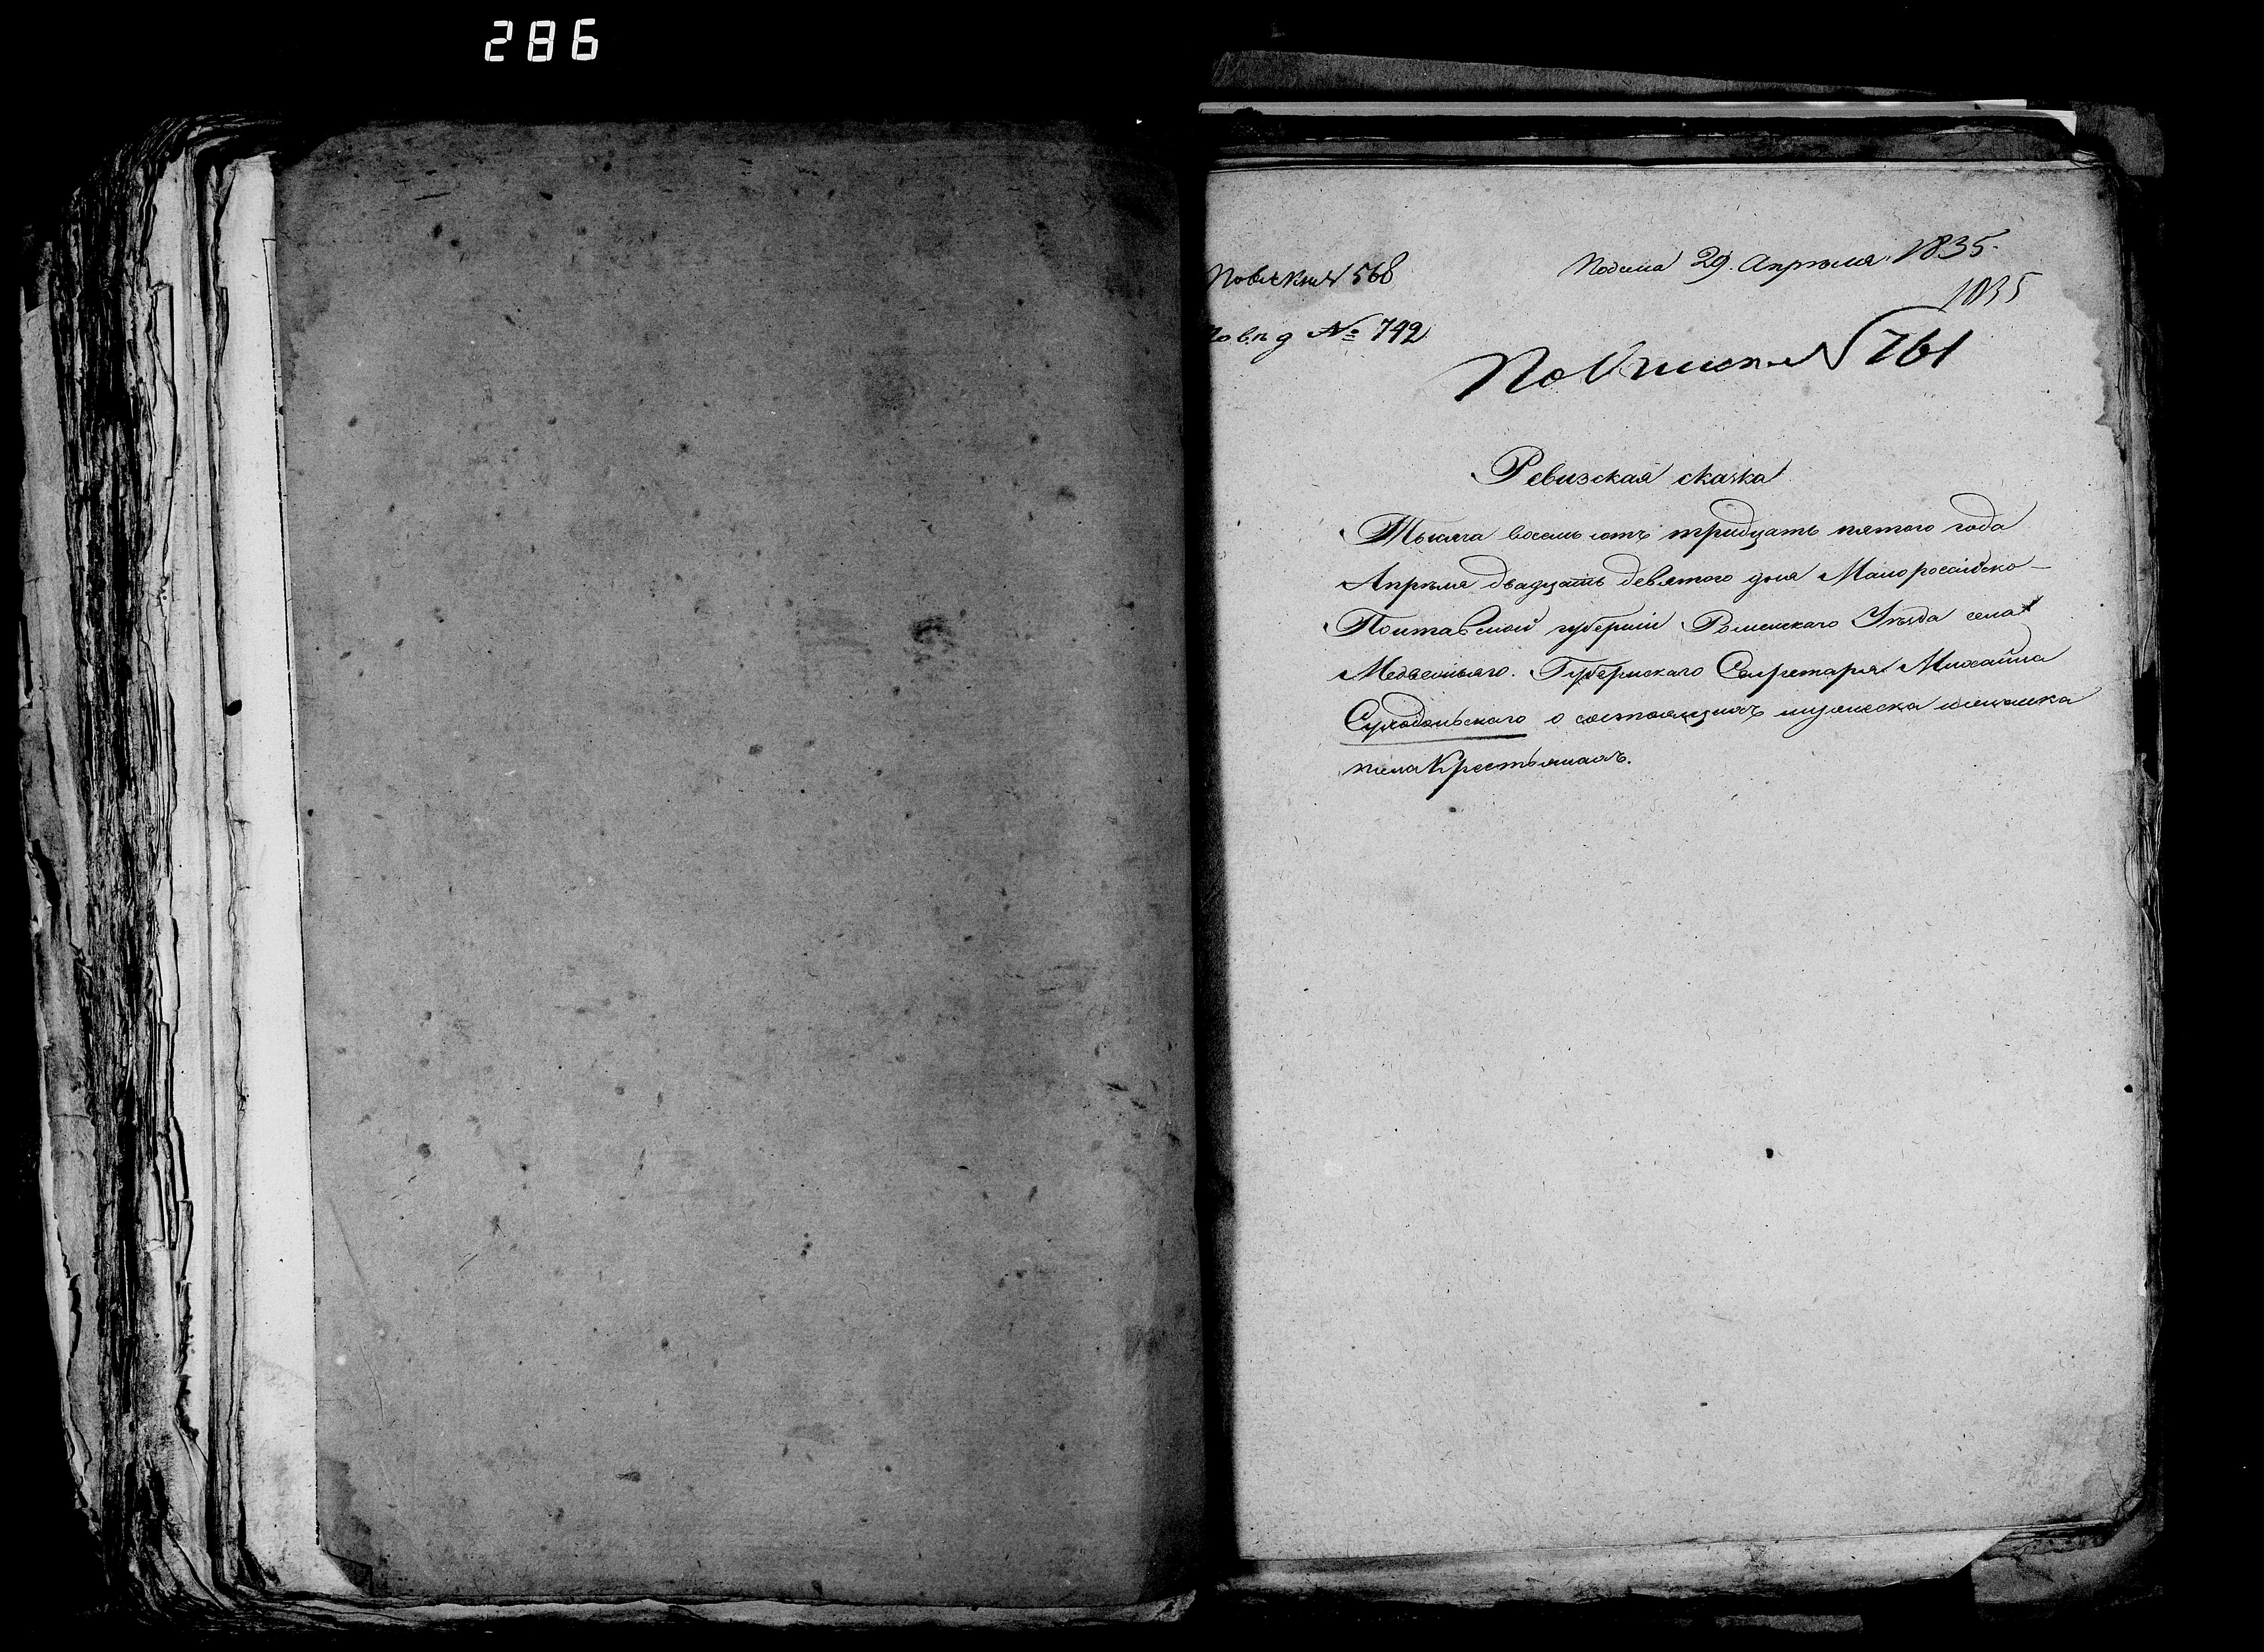 286
Подана 29. Апрѣля 1835.
1835
По в. кни № 568
По в. п. д № 742
По Описи № 761
Ревизская сказка
Тысяча восемь сотъ тридцать пятого года
Апрѣля двадцать девятого дня Малороссійско-
Полтавской губерніи Роменскаго Уѣзда села
Медвежьяго. Губернскаго Секретаря Михайла
Суходольскаго о состоящихъ мужеска и женска
пола Крестьянахъ.